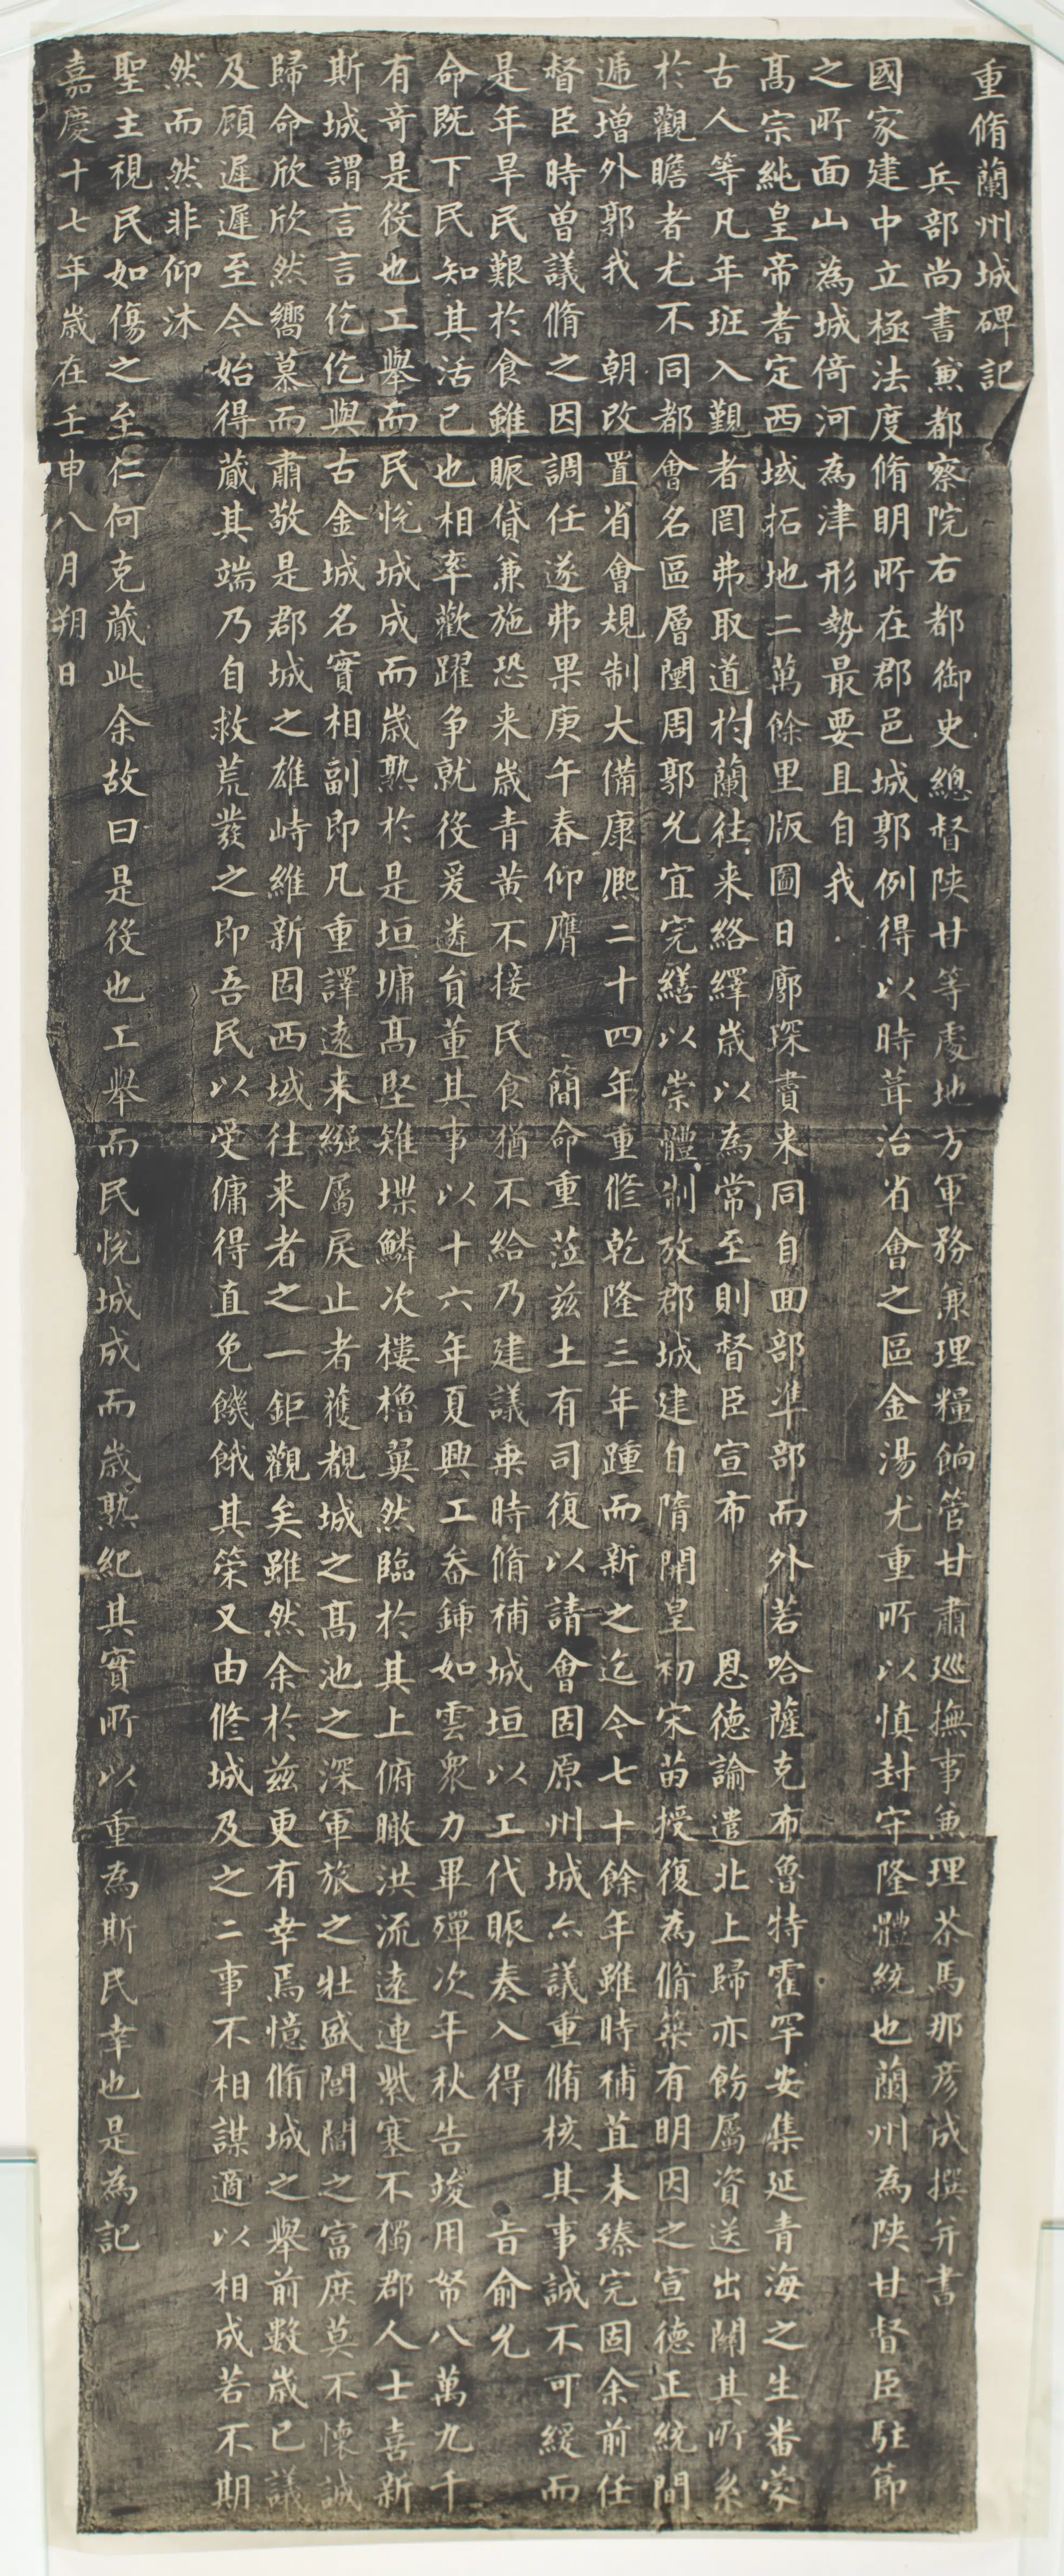 重脩蘭州城碑記
兵部尚書兼都察院右都御史總督陝甘等處地方軍務兼理糧餉管甘肅巡撫事兼理茶馬那彥成撰并書
國家建中立極法度脩明所在郡邑城郭例得以時葺治省會之區金湯尤重所以慎封守隆體統也蘭州為陝甘督臣駐節
之所面山為城倚河為津形勢最要且自我
高宗純皇帝耆定西域拓地二萬餘里版圖日廓琛賮来同自回部準部而外若哈薩克布魯特霍罕安集延青海之生番蒙
古人等凡年班入覲者罔弗取道於蘭往来絡繹歲以為常至則督臣宣布恩德諭遣北上歸亦飭屬資送出關其所系
於觀瞻者尤不同都會名區層闉周郭允宜完繕以崇體制攷郡城建自隋開皇初宋苗授復為脩築有明因之宣德正統間
遞增外郭我朝改置省會規制大備康熙二十四年重修乾隆三年踵而新之迄今七十餘年雖時補苴未臻完固余前任
督臣時曾議脩之因調任遂弗果庚午春仰膺簡命重蒞兹土有司復以請會固原州城亦議重脩核其事誠不可緩而
是年旱民艱於食雖賑貸兼施恐来歲青黃不接民食猶不給乃建議乗時脩補城垣以工代賑奏入得旨俞允
命既下民知其活已也相率歡躍争就役爰遴員董其事以十六年夏興工畚鍤如雲衆力畢殫次年秋告竣用帑八萬九千
有奇是役也工舉而民悅城成而歲熟於是垣墉高堅雉堞鱗次樓櫓翼然臨於其上俯瞰洪流遠連紫塞不獨郡人士喜新
斯城謂言言仡仡與古金城名實相副即凡重譯遠来繦屬戾止者獲覩城之高池之深軍旅之壯盛閭閻之富庶莫不懷誠
歸命欣欣然嚮慕而肅敬是郡城之雄峙維新固西域往来者之一鉅觀矣雖然余於兹更有幸焉憶脩城之舉前數歲已議
及顧遲遲至今始得蕆其端乃自救荒發之即吾民以受傭得直免饑餓其榮又由修城及之二事不相謀適以相成若不期
然而然非仰沐
聖主視民如傷之至仁何克蕆此余故曰是役也工舉而民悅城成而歲熟紀其實所以重為斯民幸也是為記
嘉慶十七年歲在壬申八月朔日